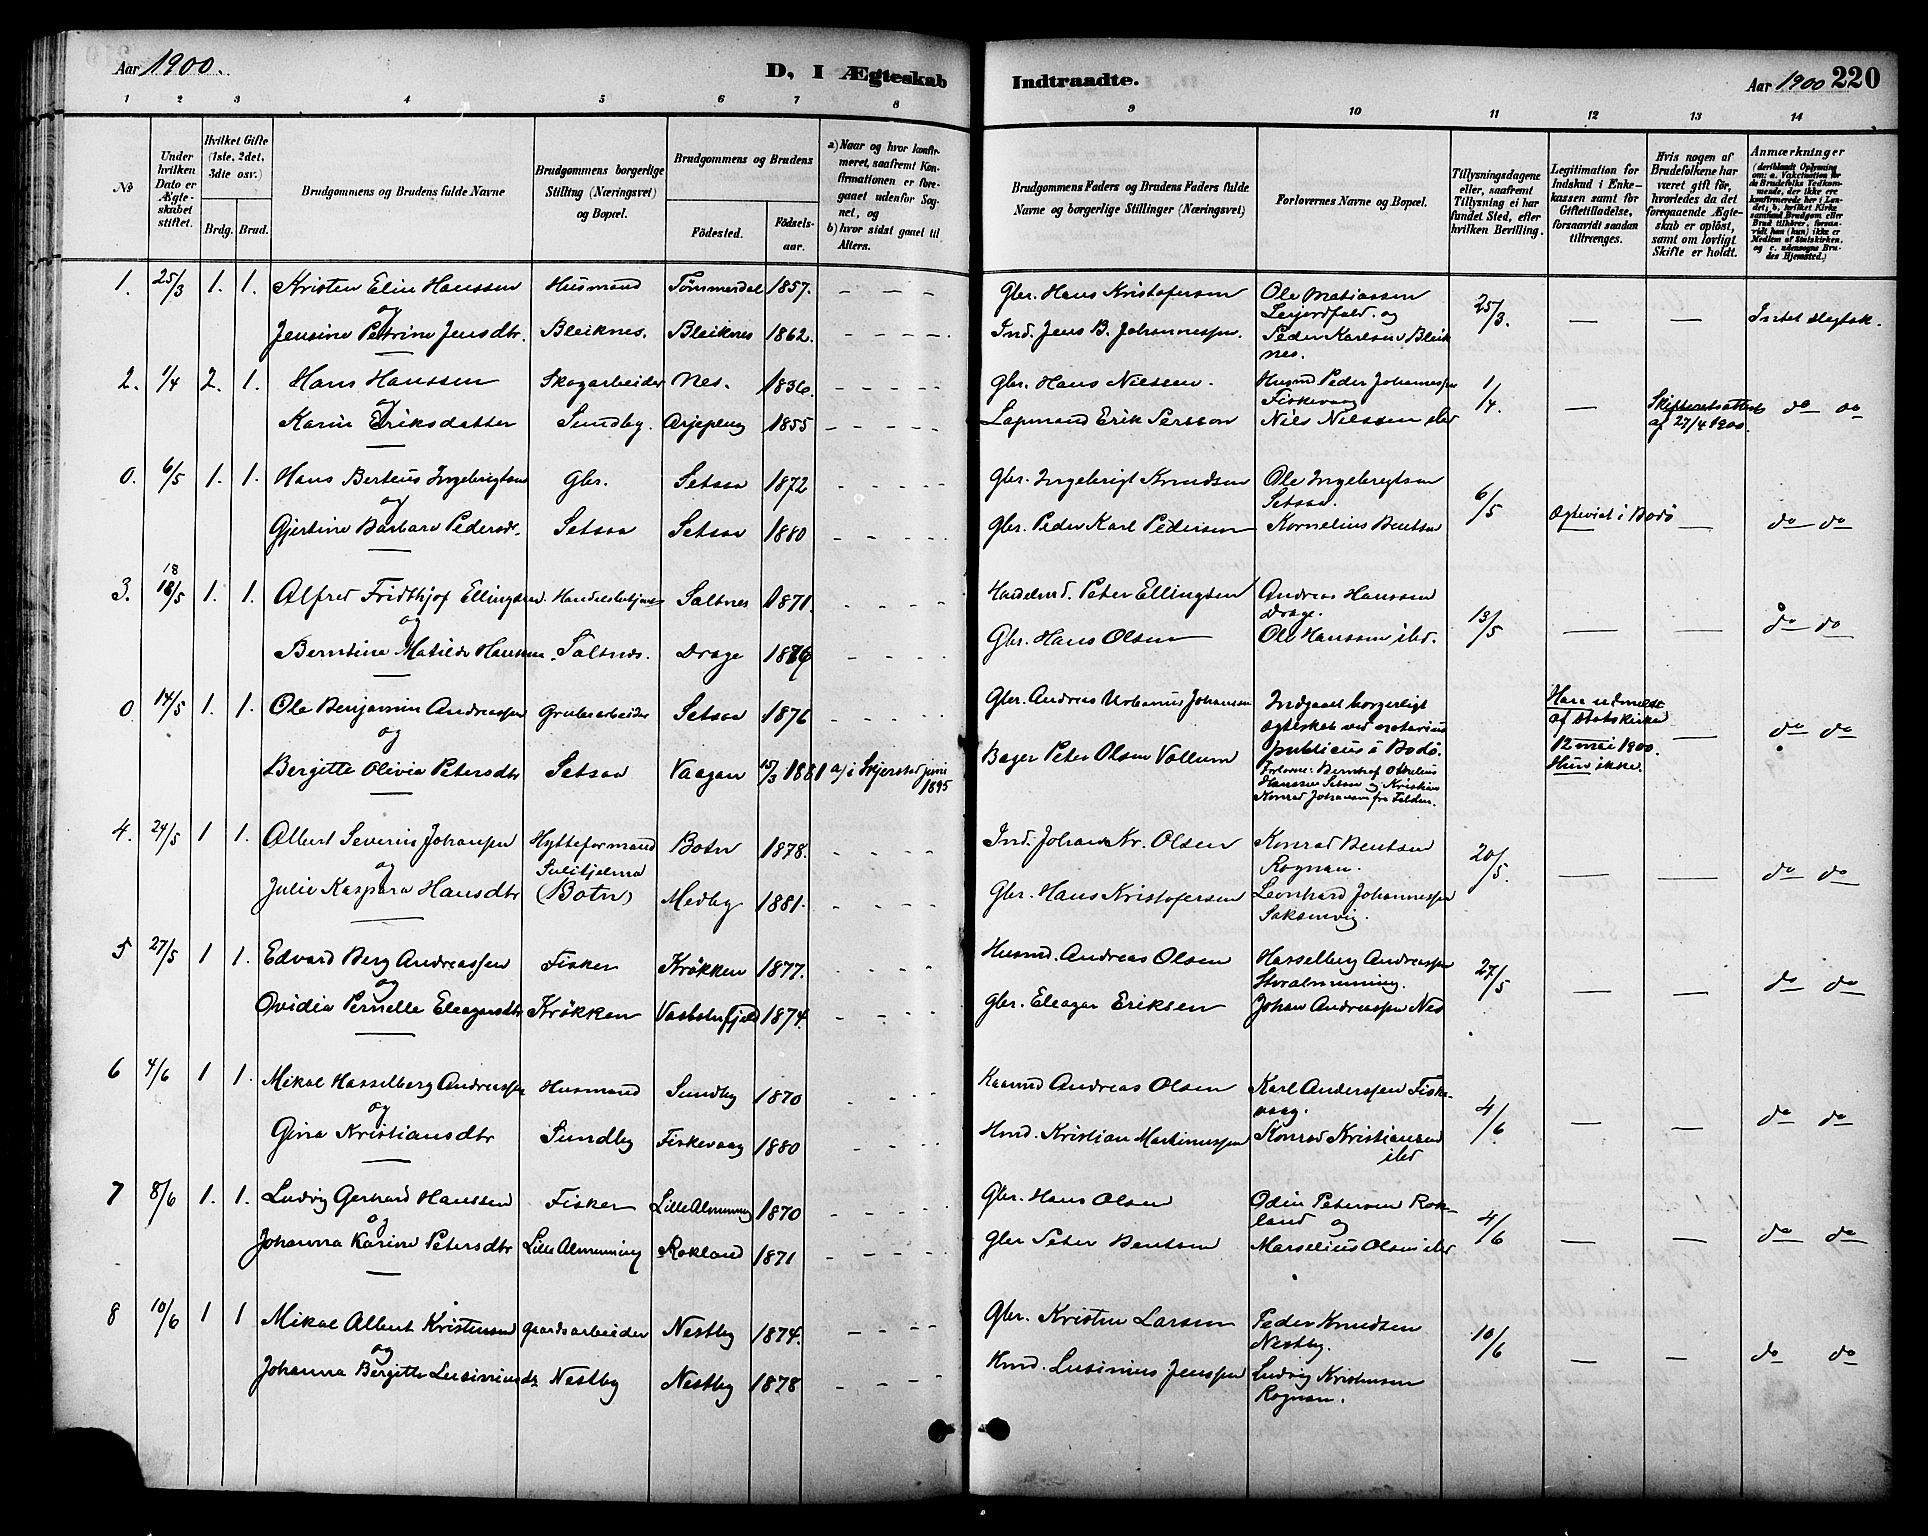 Aar 1900.
D, I Ægteskab Indtraadte.
Aar 1900 220
1 2 3 4 5 6 7 8 9 10 11 12 13 14
No
Under hvilken Dato er Ægteskabet stiftet.
Hvilket Gifte (1ste, 2det, 3die osv.)
Brdg. Brud.
Brudgommens og Brudens fulde Navne
Brudgommens borgerlige Stilling (Næringsvei) og Bopæl.
Brudgommens og Brudens
Fødested.
Fødselsaar.
a) Naar og hvor konfirmeret, saafremt Konfirmationen er foregaaet udenfor Sognet, og
b) hvor sidst gaaet til Alters.
Brudgommens Faders og Brudens Faders fulde Navne og borgerlige Stillinger (Næringsvei)
Forlovernes Navne og Bopæl.
Tillysningsdagene eller, saafremt Tillysning ei har fundet Sted, efter hvilken Bevilling.
Legitimation for Indskud i Enkekassen samt for Giftetilladelse, forsaavidt saadan tiltrænges.
Hvis nogen af Brudefolkene har været gift før, hvorledes da det foregaaende Ægteskab er opløst, samt om lovligt Skifte er holdt.
Anmærkninger
(deriblandt Oplysning om: a. Vakcination for de Brudefolks Vedkommende, der ikke ere konfirmerede her i Landet; b. hvilket Kirkesamfund Brudgom eller Brud tilhører, forsaavidt han (hun) ikke er Medlem af Statskirken, og c. udensogns Brudes Hjemsted.)
1. 25/3 1. 1. Kristen Elin Hanssen Husmand Tømmerdal 1857. – – – Gbr. Hans Kristofersen Ole Matiassen Leijordfald. og 25/3. — — Intet slegtsk.
og
Jensine Petrine Jensdtr. Bleiknes. Bleiknes 1862. – – – – Ind. Jens B. Johannessen. Peder Karlsen Bleiknes.
2. 1/4 2. 1. Hans Hanssen Skogarbeider Nes. 1836. – – – – Gbr. Hans Nilssen. Husmd Peder Johannessen Fiskevaag 1/4 — Skifteretsattest af 27/4 1900. do do
og
Karin Eriksdatter Sundby. Arjeplug 1855 – – – – Lapmand Erik Persson Niels Nielssen ibd
0. 6/5 1. 1. Hans Berteus Ingebrigtsen Gbr. Setsaa 1872 – – – – Gbr. Ingebrigt Knudsen Ole Ingebrigtsen Setsaa. 6/5 Egteviet i Bodø — do do
og
Gjertine Barbara Pedersd. Setsaa Setsaa 1880 – – – – Gbr. Peder Karl Pedersen Kornelius Bentsen
3. 18/5 1. 1. Alfred Fridthjof Ellingsen Handelsbetjent Saltnes 1871. – – – – Handelsmd. Peter Ellingsen Andreas Hanssen Drage. 13/5 — — do do
og
Berntine Matilde Hanssen. Saltnes. Drage – – – – Gbr. Hans Olsen Ole Hanssen ibd.
0 14/5 1. 1. Ole Benjamin Andreassen Grubearbeider Setsaa 1876 – – – – Gbr. Andreas Urbanus Johansen Indgaaet borgerligt egteskab ved notarius publicus i Bodø. Han udmeldt af statskirken 12 mai 1900. Hun ikke. — do do
og
Bergitte Olivia Petersdtr Setsaa Vaagan 15/3 1881 a) i Skjerstad juni 1895 Bager Peter Olsen Vollum Forlovere: Hanssen Setsaa og Kristian Konrad Johansen fra
4. 24/5 1 1. Albert Severin Johansen Hytteformand Sulitjelma (Botn) Botn 1878. – – – Ind. Johan Kr. Olsen Konrad Bentsen Rognan. 20/5. — — do do
og
Julie Kaspara Hansdtr Medby 1881. – – – – Gbr. Hans Kristofersen Leonhard Johannessen Saksenvig.
5 27/5 1 1. Edvard Berg Andreassen Fisker Krökken 1877. – – – – Husmd. Andreas Olsen Hasselberg Andreassen Storalmenning. 27/5 — — do do
og
Ovidia Pernelle Eleazarsdtr Krökken Vasbotnfjeld 1874. – – – – Gbr. Eleazar Eriksen Johan Andreassen Nes
6 4/6 1 1. Mikal Hasselberg Andreassen Husmand Sundby 1870 – – – – Andreas Olsen Karl Anderssen Fiskevaag. 4/6 — — do do
og
Gina Kristiansdtr Sundby Fiskevaag 1880 – – – – Hmd. Kristian Martinussen Konrad Kristiansen ibd
7 8/6 1. 1. Ludvig Gerhard Hanssen Fisker Lille Almenning 1870 – – – – Gbr. Hans Olsen Odin Petersen Rokland og 4/6 — — do do
og
Johanna Karine Petersdtr Lille Almenning Rokland 1871 – – – – Gbr Peter Bentsen Marselius Olsen ibd
8 10/6 1 1 Mikal Albert Kristensen Gaardsarbeider Nestby 1874. – – – – Gbr. Kristen Larsen Peder Knudsen Nestby. 10/6 — — do do
og
Johanna Bergitte Lusiniusdr Nestby Nestby 1878 – – – – Hmd. Lusinius Jenssen Ludvig Kristensen Rognan.